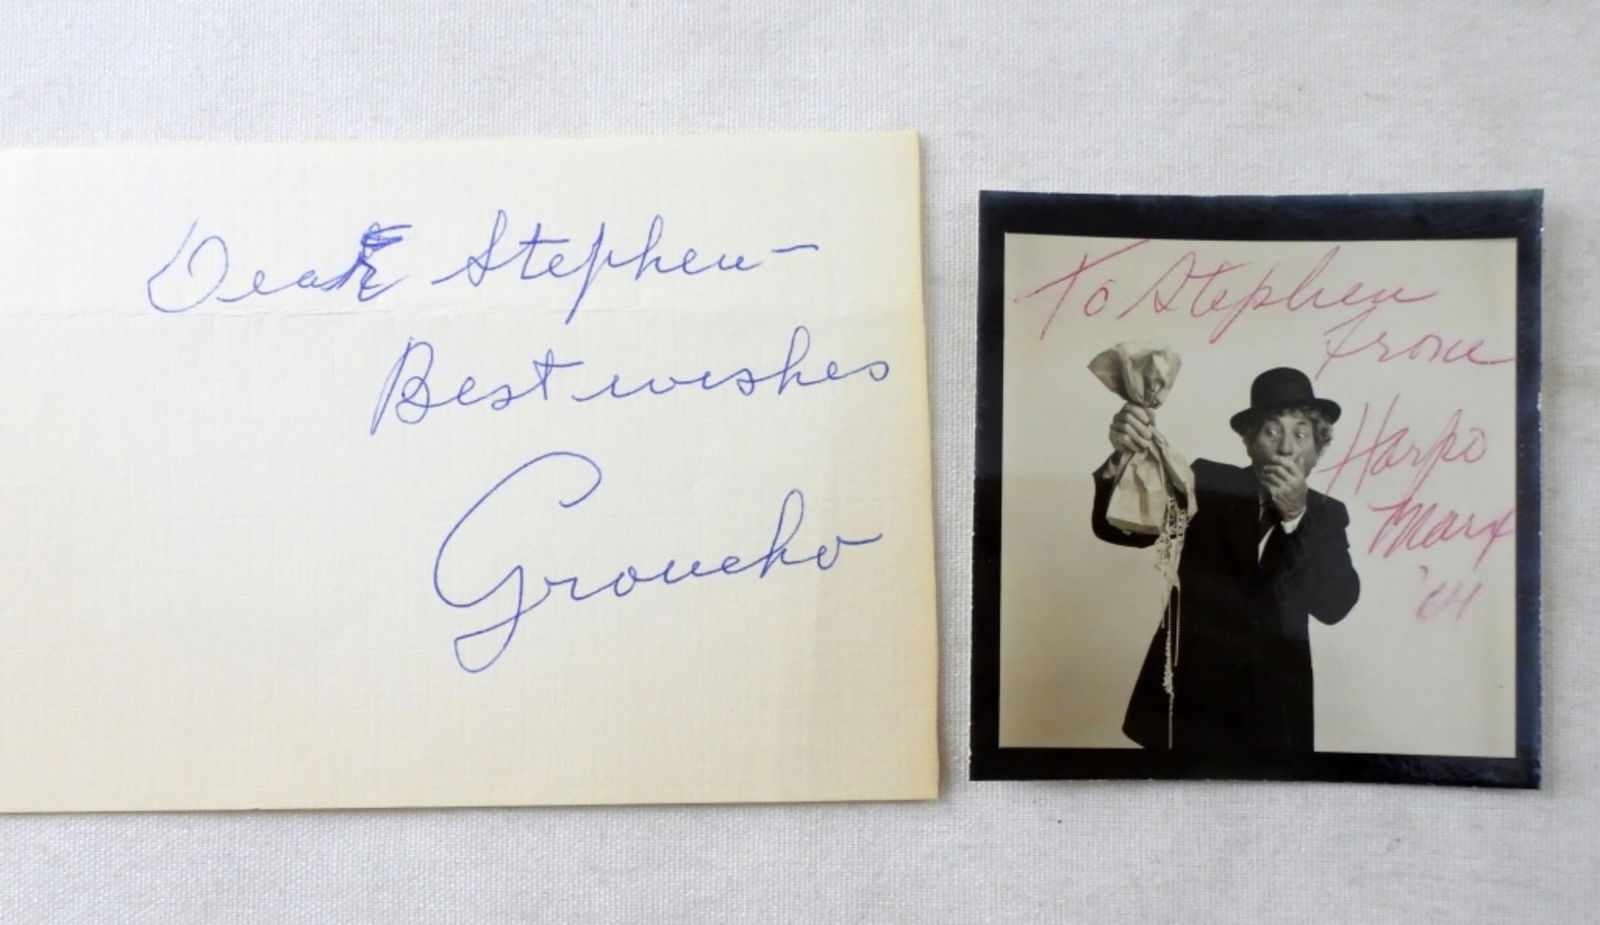 Dear Stephen-
Best wishes
Groucho
To Stephen
From
Harpo
Marx
'64